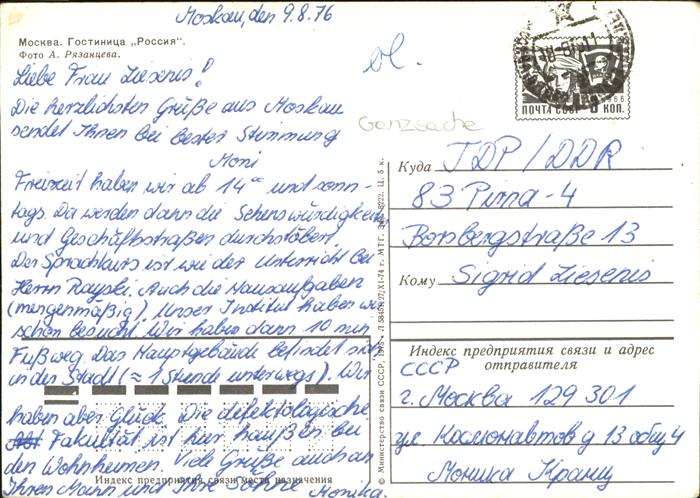 Moskau, den 9.8.76
Москва. Гостиница „Россия".
Фото А. Рязанцева.
Liebe Frau Liesenis!
Die herzlichsten Grüße aus Moskau
sendet Ihnen bei bester Stimmung
Moni
Freizeit haben wir ab 14°° und sonn-
tags. Da werden dann die Sehenswürdigkeiten
und Geschäftsstraßen durchstöbert.
Der Sprachkurs ist wie der Unterricht bei
Herrn Rayski. Auch die Hausaufgaben
(mengenmäßig). Unser Institut haben wir
schon besucht. Wir haben dann 10 min
Fußweg. Das Hauptgebäude befindet sich
in der Stadt (≈ 1 Stunde unterwegs). Wir
haben aber Glück. Die defektologische
Fakultät ist hier haußen bei
den Wohnheimen. Viele Grüße auch an
Ihren Mann und Ihre Söhne Monika.
Индекс предприятия связи места назначения
© Министерство связи СССР, 1975
Ganzsache
ПОЧТА СССР
1966
КОП.
Куда TDP/DDR
83 Pirna-4
Borsbergstraße 13
Кому Sigrid Liesenis
Индекс предприятия связи и адрес
отправителя
СССР
г. Москва 129 301
ул. Космонавтов д 13 общ 4
Моника Кранц